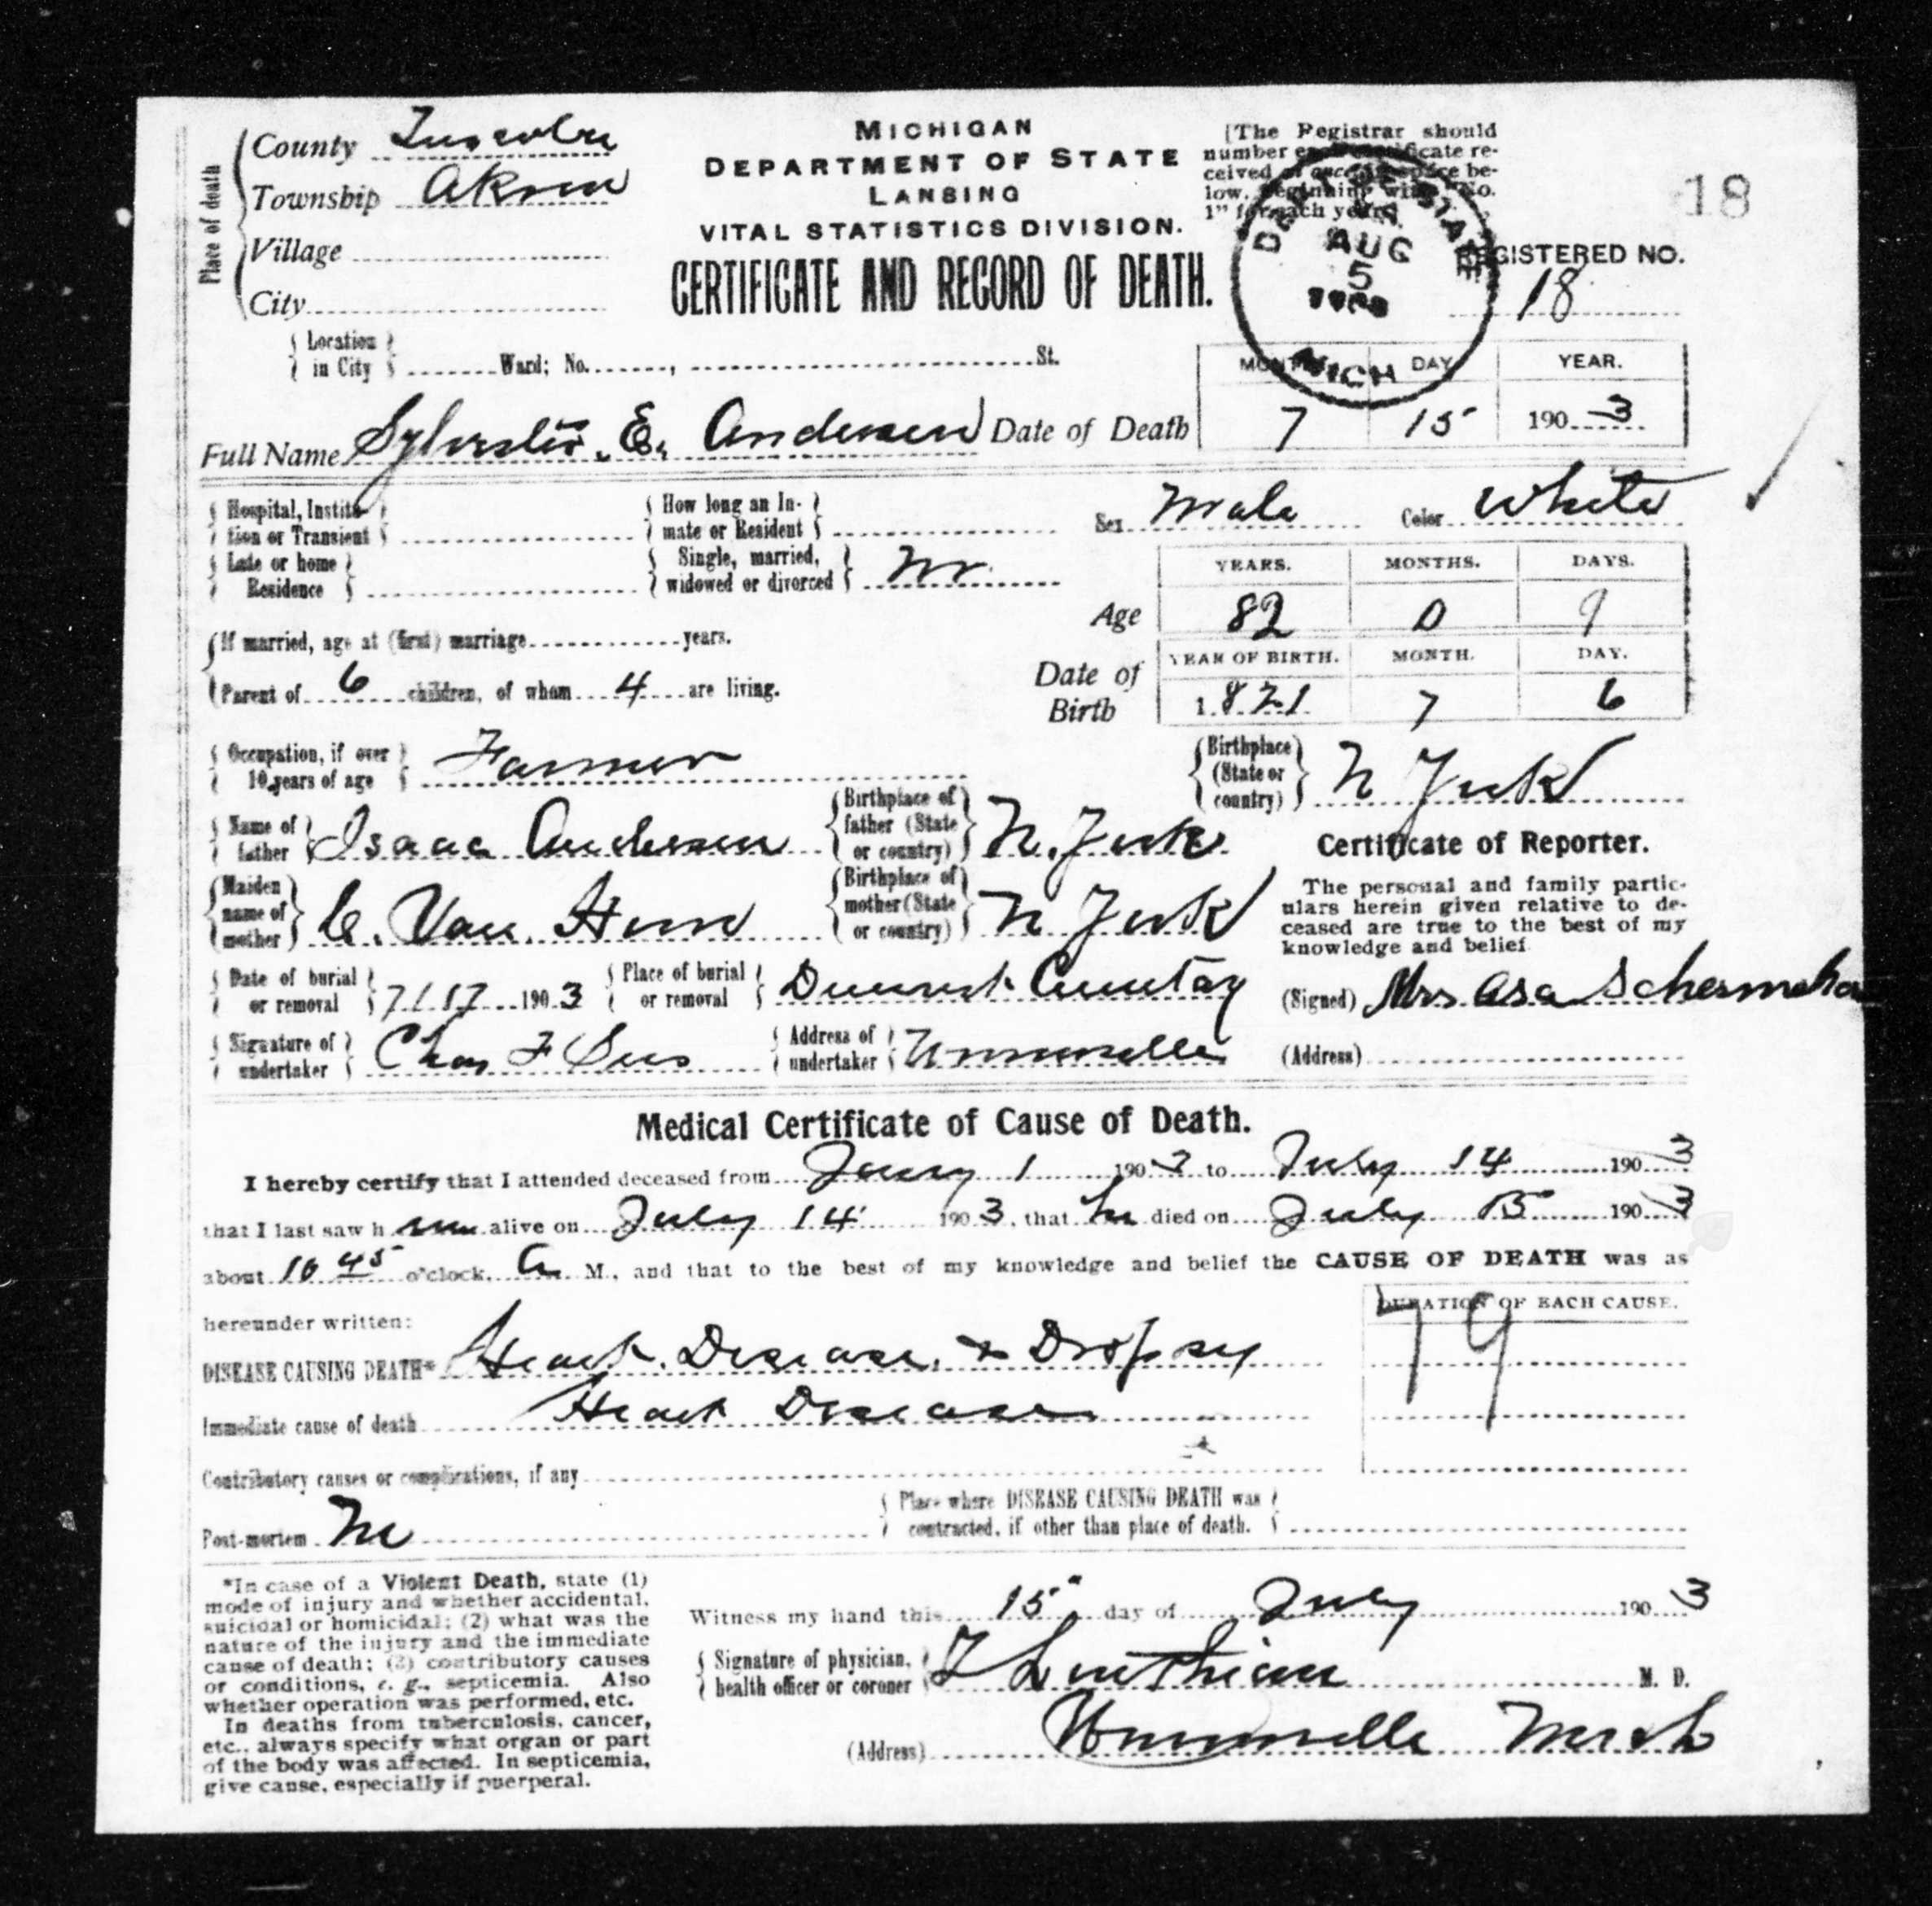 Place of death
County Tuscola
Township Akron
Village
City
MICHIGAN
DEPARTMENT OF STATE
LANSING
VITAL STATISTICS DIVISION.
CERTIFICATE AND RECORD OF DEATH.
[The Registrar should
number each certificate re-
ceived at once in space be-
low, beginning with "No.
1" for each year]
DEP STATE
AUG
5
MICH
18
REGISTERED NO.
18
Location in City Ward; No. , St.
Full Name Sylvester. E. Anderson Date of Death
MONTH DAY YEAR.
7 15 1903
Hospital, Institution or Transient
How long an Inmate or Resident
Sex Male Color White
Late or home Residence
Single, married, widowed or divorced
Age
YEARS. MONTHS. DAYS.
82 0 9
If married, age at (first) marriage years.
Parent of 6 children, of whom 4 are living.
Date of Birth
YEAR OF BIRTH. MONTH. DAY.
1821 7 6
Occupation, if over 10 years of age Farmer
Birthplace (State or country) N York
Name of father Isaac Anderson
Birthplace of father (State or country) N. York
Maiden name of mother C. Van Horn
Birthplace of mother (State or country) N York
Certificate of Reporter.
The personal and family partic-
ulars herein given relative to de-
ceased are true to the best of my
knowledge and belief
(Signed) Mrs Asa
(Address)
Date of burial or removal 7/17 1903
Place of burial or removal Cemetary
Signature of undertaker Chas F
Address of undertaker Unionville
Medical Certificate of Cause of Death.
I hereby certify that I attended deceased from 1 190 to July 14 1903
that I last saw him alive on July 14 1903, that he died on July 15 1903
about 10 45 o'clock, A. M., and that to the best of my knowledge and belief the CAUSE OF DEATH was as
hereunder written:
DURATION OF EACH CAUSE.
79
DISEASE CAUSING DEATH* Heart Disease, & Dropsy
Immediate cause of death Heart Disease
Contributory causes or complications, if any
Post-mortem No
Place where DISEASE CAUSING DEATH was contracted, if other than place of death.
*In case of a Violent Death, state (1)
mode of injury and whether accidental,
suicidal or homicidal; (2) what was the
nature of the injury and the immediate
cause of death; (3) contributory causes
or conditions, e. g., septicemia. Also
whether operation was performed, etc.
In deaths from tuberculosis, cancer,
etc., always specify what organ or part
of the body was affected. In septicemia,
give cause, especially if puerperal.
Witness my hand this 15" day of July 1903
Signature of physician, health officer or coroner M. D.
(Address) Unionville Mich